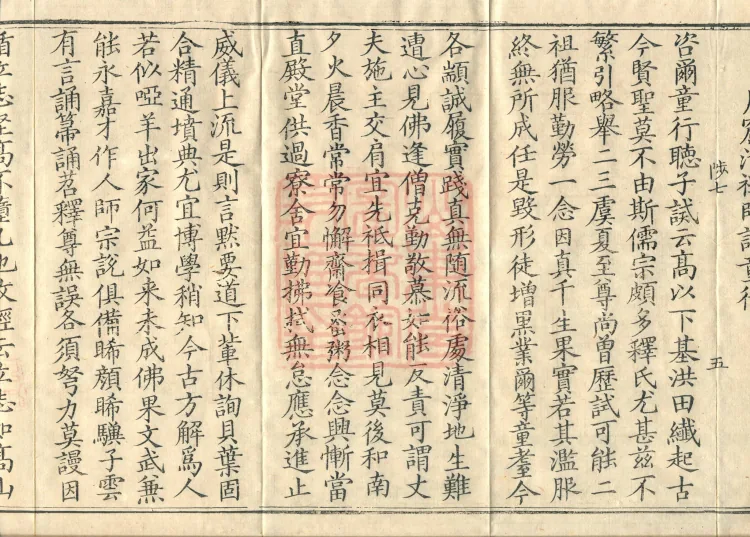 咨爾童行聽予誡云高以下基洪因纖起古
今賢聖莫不由斯儒宗頗多釋氏尤甚茲不
繁引略舉二三虞夏至尊尚曾歷試可能二
祖猶服勤勞一念因真千生果實若其濫服
終無所成任是毀形徒增黑業爾等童耋今
各顓誠履實踐真無隨流俗處清淨地生難
遭心見佛逢僧克勤敬慕如能反責可謂丈
夫施主交肩宜先祇揖同衣相見莫後和南
夕火晨香常常勿懈齋飡蚤粥念念興慚當
直殿堂供過寮舍宜勤拂拭無怠應承進止
威儀上流是則言默要道下輩休詢貝葉固
合精通墳典尤宜博學稍知今古方解為人
若似啞羊出家何益如来未成佛果文武兼
能永嘉才作人師宗說俱備睎顏睎驥子雲
有言誦箒誦苕釋尊無誤各須努力莫謾因
陟七
五